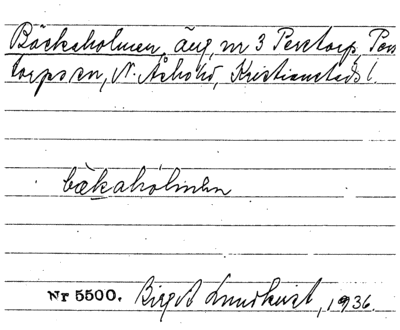 Bäckaholmen, äng, nr 3 Perstorp, Pers
torps sn, N. Åsbo hd, Kristianstads l.
bækahólmen
Nr 5500. Birgit Lundkvist, 1936.